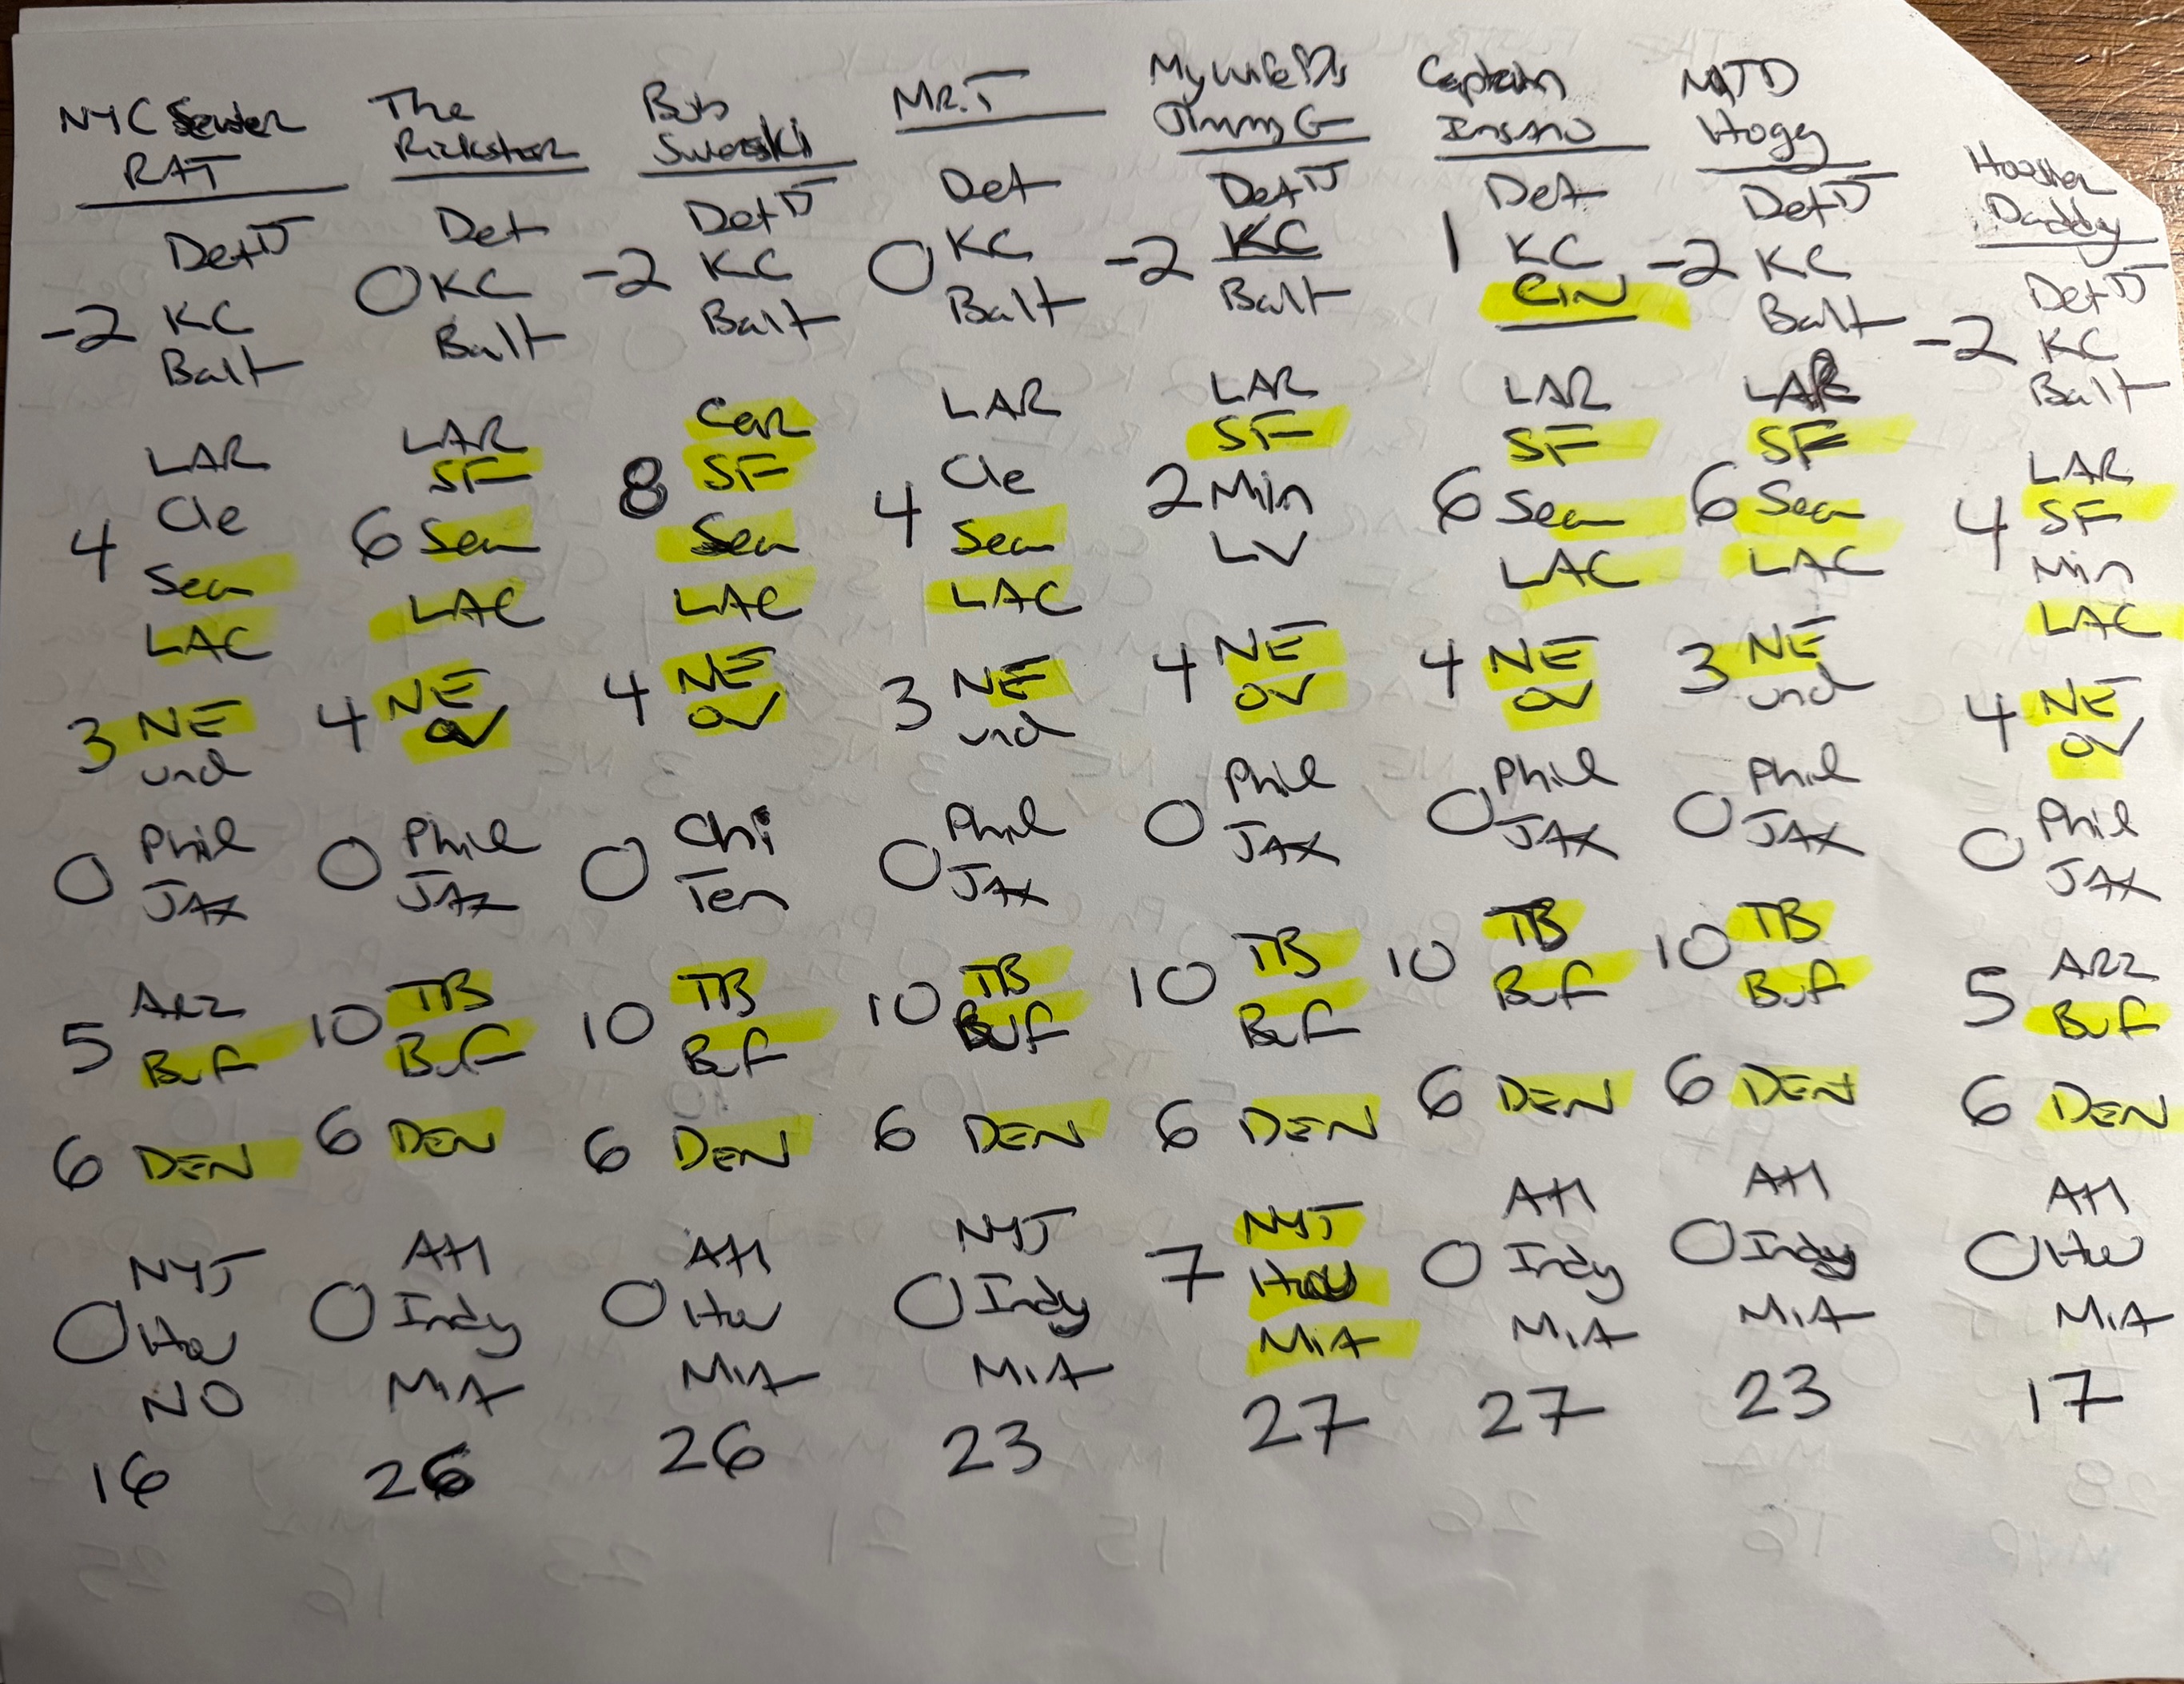 NYC Sewer
RAT
Det D
-2 KC
Balt
LAR
Cle
4
Sea
LAC
3 NE
und
0 Phil
JAX
ARZ
5 Buf
6 DEN
NYJ
0 Hou
NO
16
The
Rickster
Det
0 KC
Balt
LAR
SF
6 Sea
LAC
4 NE
OV
0 Phil
JAX
10 TB
Buf
6 DEN
Atl
0 Indy
MIA
26
Bob
Swerski
Det D
-2 KC
Balt
Car
8 SF
Sea
LAC
4 NE
OV
0 Chi
Ten
10 TB
Buf
6 DEN
Atl
0 Hou
MIA
26
MR. T
Det
0 KC
Balt
LAR
Cle
4 Sea
LAC
3 NE
und
0 Phil
JAX
10 TB
Buf
6 DEN
NYJ
0 Indy
MIA
23
My wife ♡'s
Jimmy G
Det D
-2 KC
Balt
LAR
SF
2 Min
LV
4 NE
OV
0 Phil
JAX
10 TB
Buf
6 DEN
NYJ
7 Hou
MIA
27
Captain
Insano
Det
1 KC
CIN
LAR
SF
6 Sea
LAC
4 NE
OV
0 Phil
JAX
10 TB
Buf
6 DEN
Atl
0 Indy
MIA
27
MTD
Hogg
Det D
-2 KC
Balt
LAR
SF
6 Sea
LAC
3 NE
und
0 Phil
JAX
10 TB
Buf
6 DEN
Atl
0 Indy
MIA
23
Daddy
Det D
-2 KC
Balt
LAR
4 SF
Min
LAC
4 NE
OV
0 Phil
JAX
ARZ
5 Buf
6 DEN
Atl
0 Hou
MIA
17